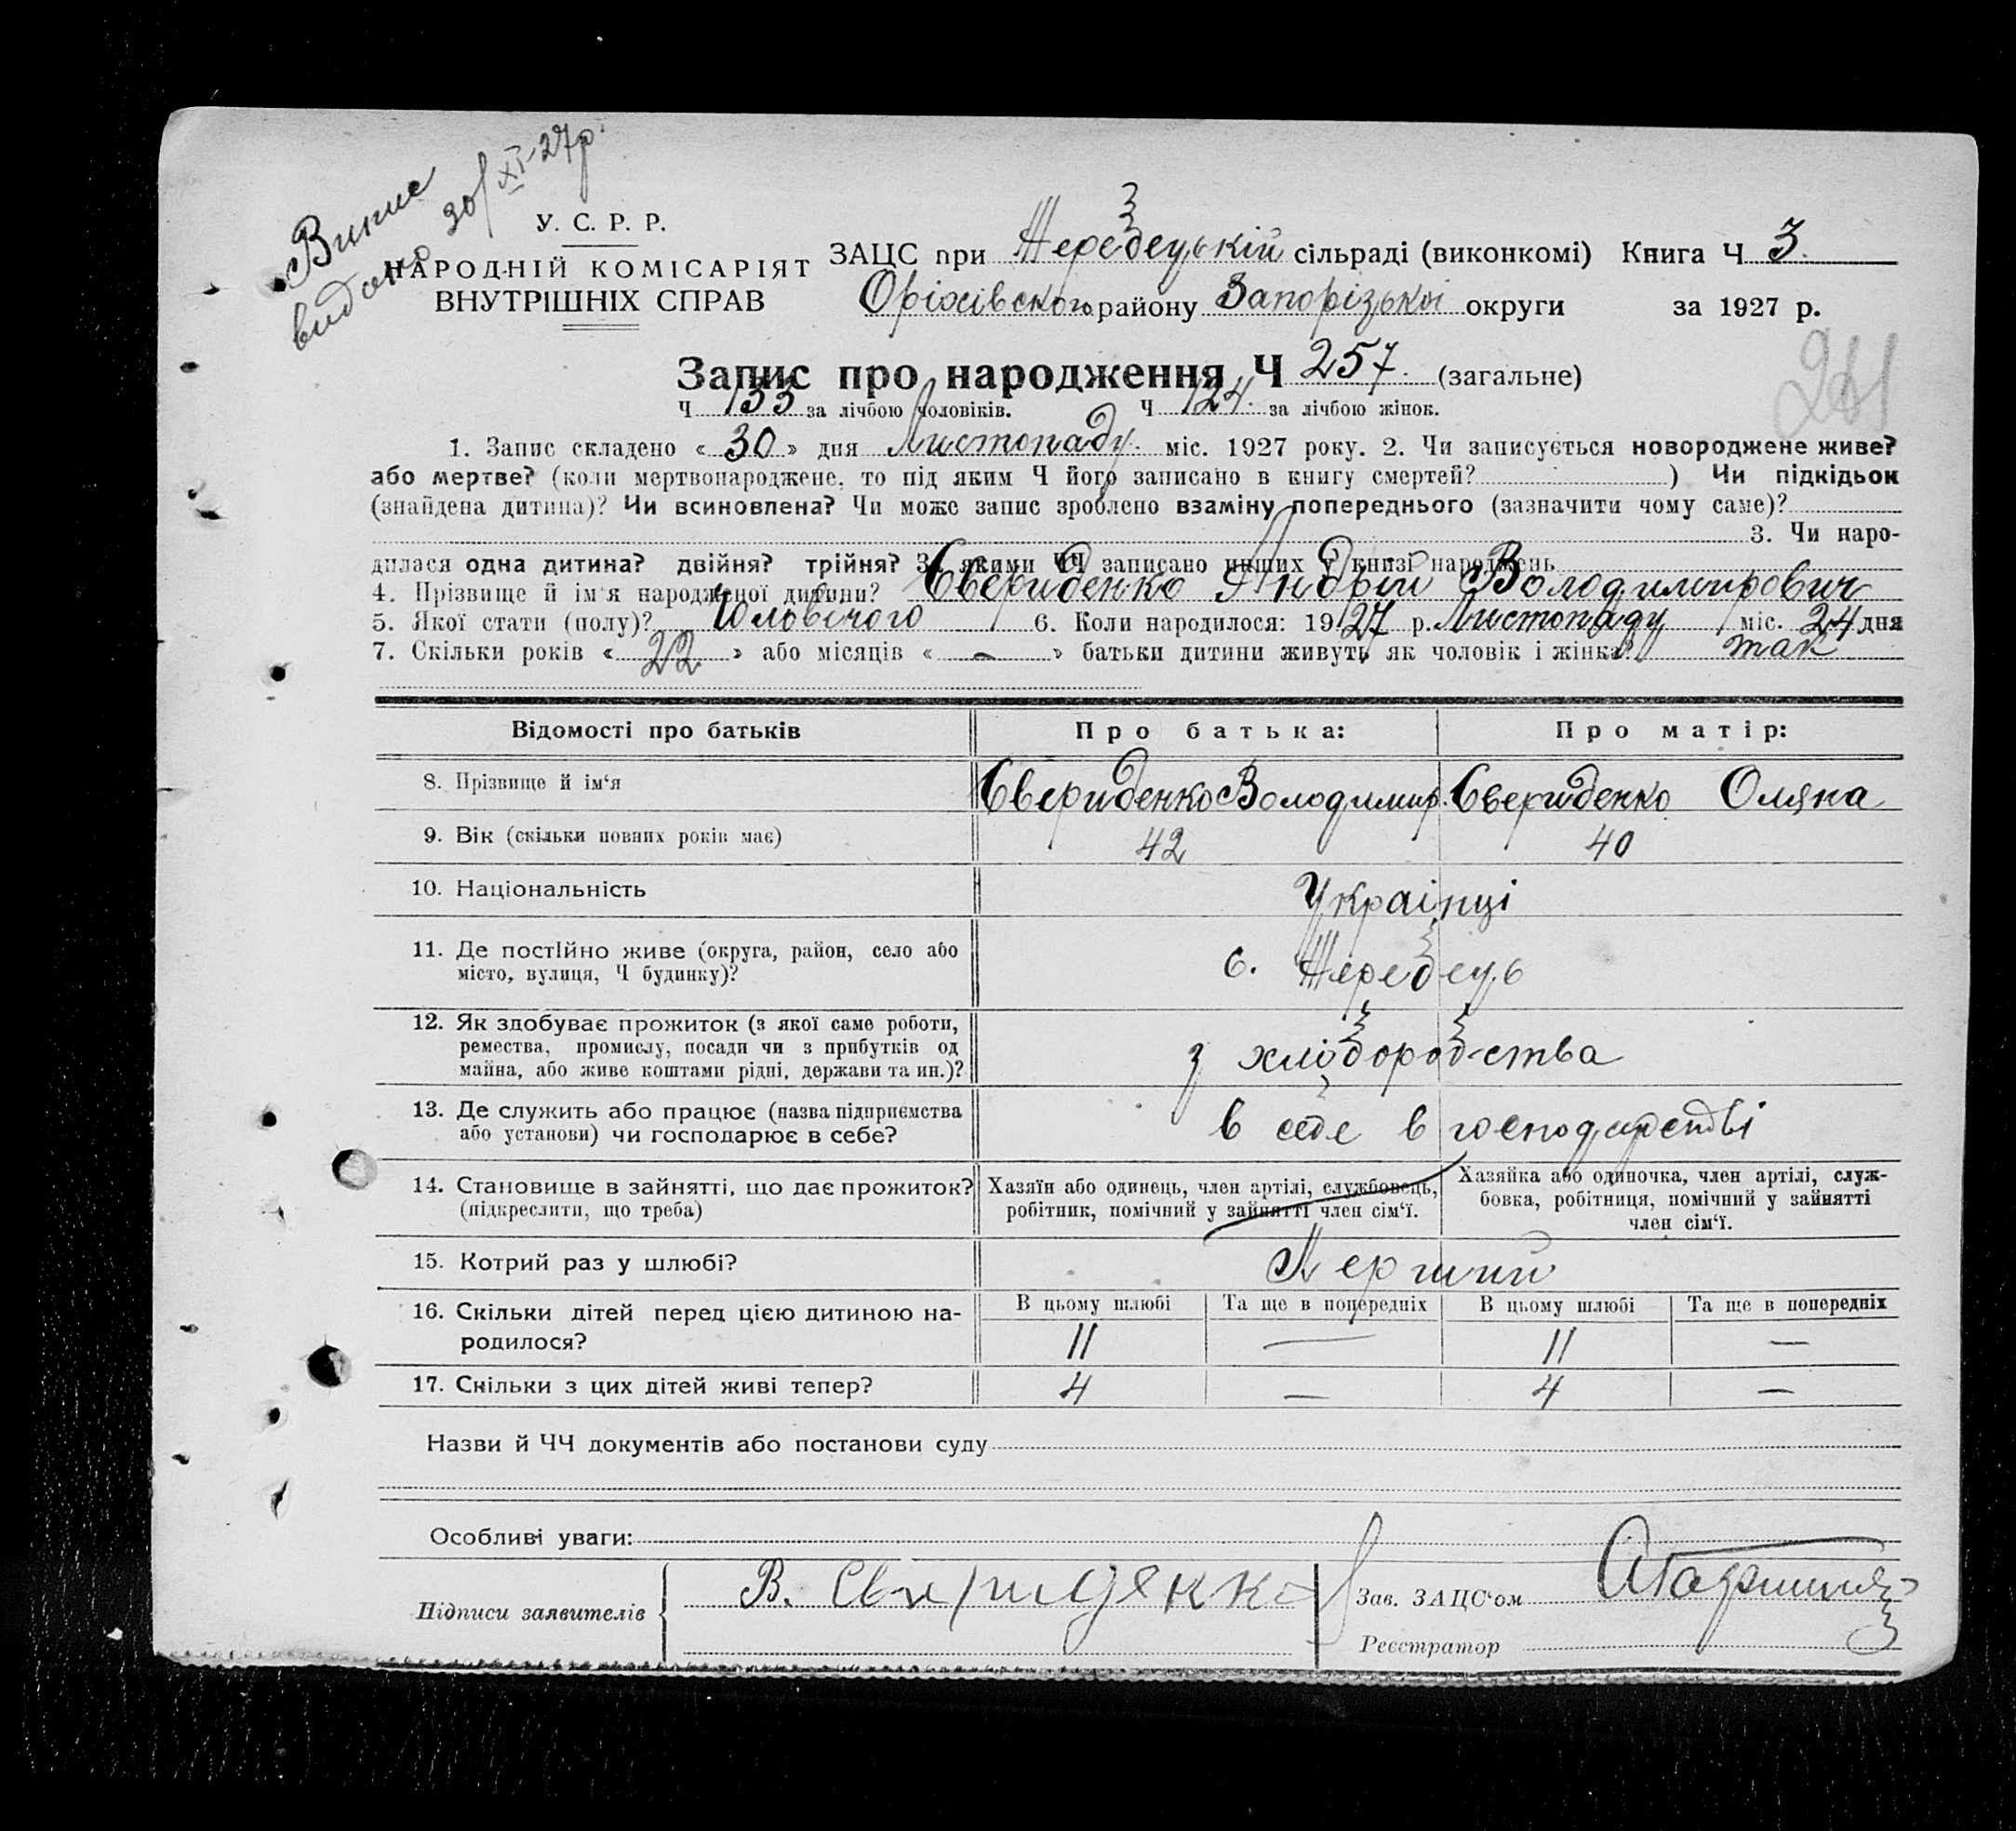 Випис
видано 30/XI-27р.
У. С. Р. Р.
НАРОДНІЙ КОМІСАРІЯТ
ВНУТРІШНІХ СПРАВ
ЗАЦС при Жеребецькій сільраді (виконкомі) Книга Ч 3.
Оріхівського району Запорізької округи за 1927 р.
Запис про народження Ч 257. (загальне)
Ч 133 за лічбою чоловіків. Ч 124. за лічбою жінок.
1. Запис складено «30» дня Листопаду міс. 1927 року. 2. Чи записується новороджене живе?
або мертве? (коли мертвонароджене, то під яким Ч його записано в книгу смертей? ) Чи підкідьок
(знайдена дитина)? Чи всиновлена? Чи може запис зроблено взаміну попереднього (зазначити чому саме)?
3. Чи наро-
дилася одна дитина? двійня? трійня? За якими ЧЧ записано инших у книзі народжень
4. Прізвище й ім'я народженої дитини? Свериденко Андрій Володимирович
5. Якої стати (полу)? Чоловічого 6. Коли народилося: 1927 р. Листопаду міс. 24 дня
7. Скільки років «22» або місяців «-» батьки дитини живуть як чоловік і жінка? так
Відомості про батьків Про батька: Про матір:
8. Прізвище й ім'я Свериденко Володимир. Свериденко Оляна
9. Вік (скільки повних років має) 42 40
10. Національність Українці
11. Де постійно живе (округа, район, село або
місто, вулиця, Ч будинку)? с. Жеребець
12. Як здобуває прожиток (з якої саме роботи,
ремества, промислу, посади чи з прибутків од
майна, або живе коштами рідні, держави та ин.)? з хліборобства
13. Де служить або працює (назва підприємства
або установи) чи господарює в себе? в себе в господарстві
14. Становище в зайнятті, що дає прожиток?
(підкреслити, що треба)
Хазяїн або одинець, член артілі, службовець,
робітник, помічний у зайнятті член сім'ї.
Хазяйка або одиночка, член артілі, служ-
бовка, робітниця, помічний у зайнятті
член сім'ї.
15. Котрий раз у шлюбі? Перший
16. Скільки дітей перед цією дитиною на-
родилося?
В цьому шлюбі Та ще в попередніх В цьому шлюбі Та ще в попередніх
11 — 11 —
17. Скільки з цих дітей живі тепер? 4 — 4 —
Назви й ЧЧ документів або постанови суду
Особливі уваги:
Підписи заявителів В. Свириденко
Зав. ЗАЦС'ом
Реєстратор